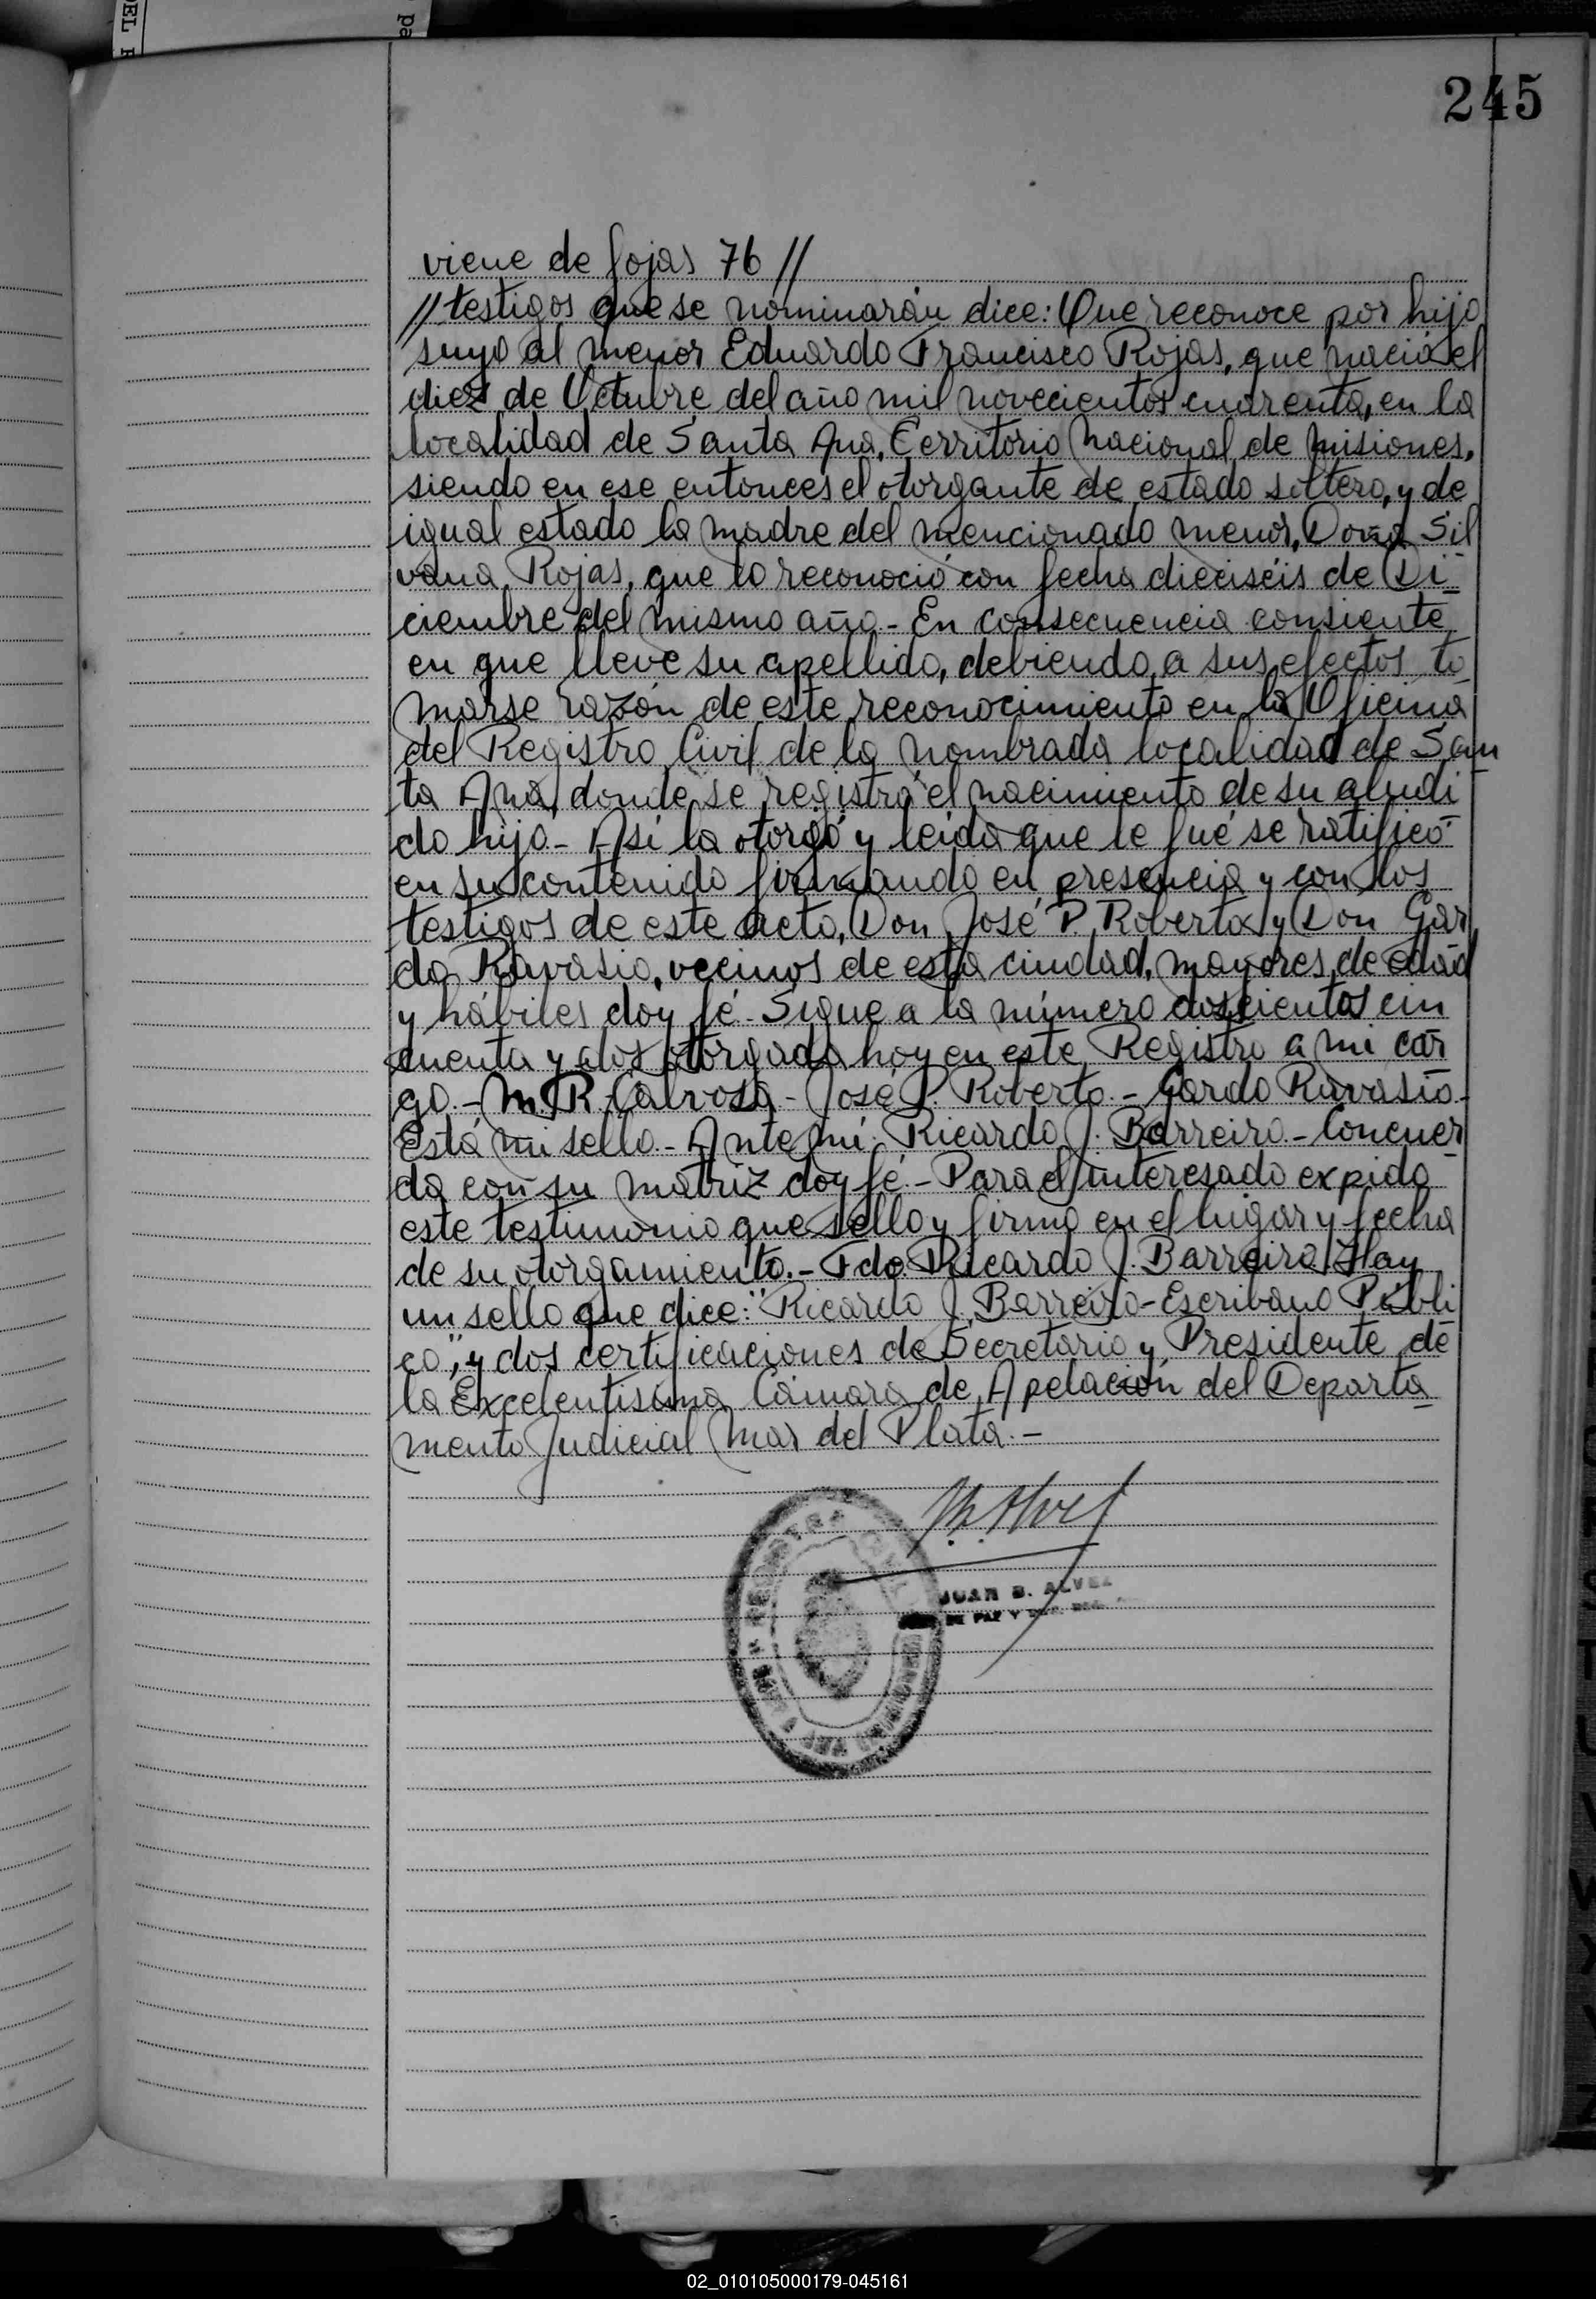 245
viene de fojas 76 //
// testigos que se nominarán dice: Que reconoce por hijo
suyo al menor Eduardo Francisco Rojas, que nació el
diez de Octubre del año mil novecientos cuarenta, en la
localidad de Santa Ana, Territorio Nacional de Misiones,
siendo en ese entonces el otorgante de estado soltero, y de
igual estado la madre del mencionado menor, Doña Sil
vana Rojas, que lo reconoció con fecha dieciseis de Di
ciembre del mismo año.- En consecuencia consiente
en que lleve su apellido, debiendo a sus efectos to
marse razón de este reconocimiento en la Oficina
del Registro Civil de la nombrada localidad de San
ta Ana, donde se registró el nacimiento de su aludi
do hijo.- Así la otorgó y leída que le fué se ratificó
en su contenido firmando en presencia y con los
testigos de este acto, Don José P. Roberto y Don Gar
do Ravasio, vecinos de esta ciudad, mayores de edad
y hábiles doy fé.- Sigue a la número doscientos cin
cuenta y dos otorgada hoy en este Registro a mi car
go.- M. R. Calvosa - José P. Roberto.- Gardo Ravasio.-
Está mi sello.- Ante mí: Ricardo J. Barreiro.- Concuer
da con su matriz doy fé.- Para el interesado expido
este testimonio que sello y firmo en el lugar y fecha
de su otorgamiento.- Fdo. Ricardo J. Barreiro/ Hay
un sello que dice: "Ricardo J. Barreiro - Escribano Públi
co", y dos certificaciones de Secretario y Presidente de
la Excelentísima Cámara de Apelación del Departa
mento Judicial Mar del Plata.-
JUAN B. ALVEZ
DE PAZ Y
02_010105000179-045161